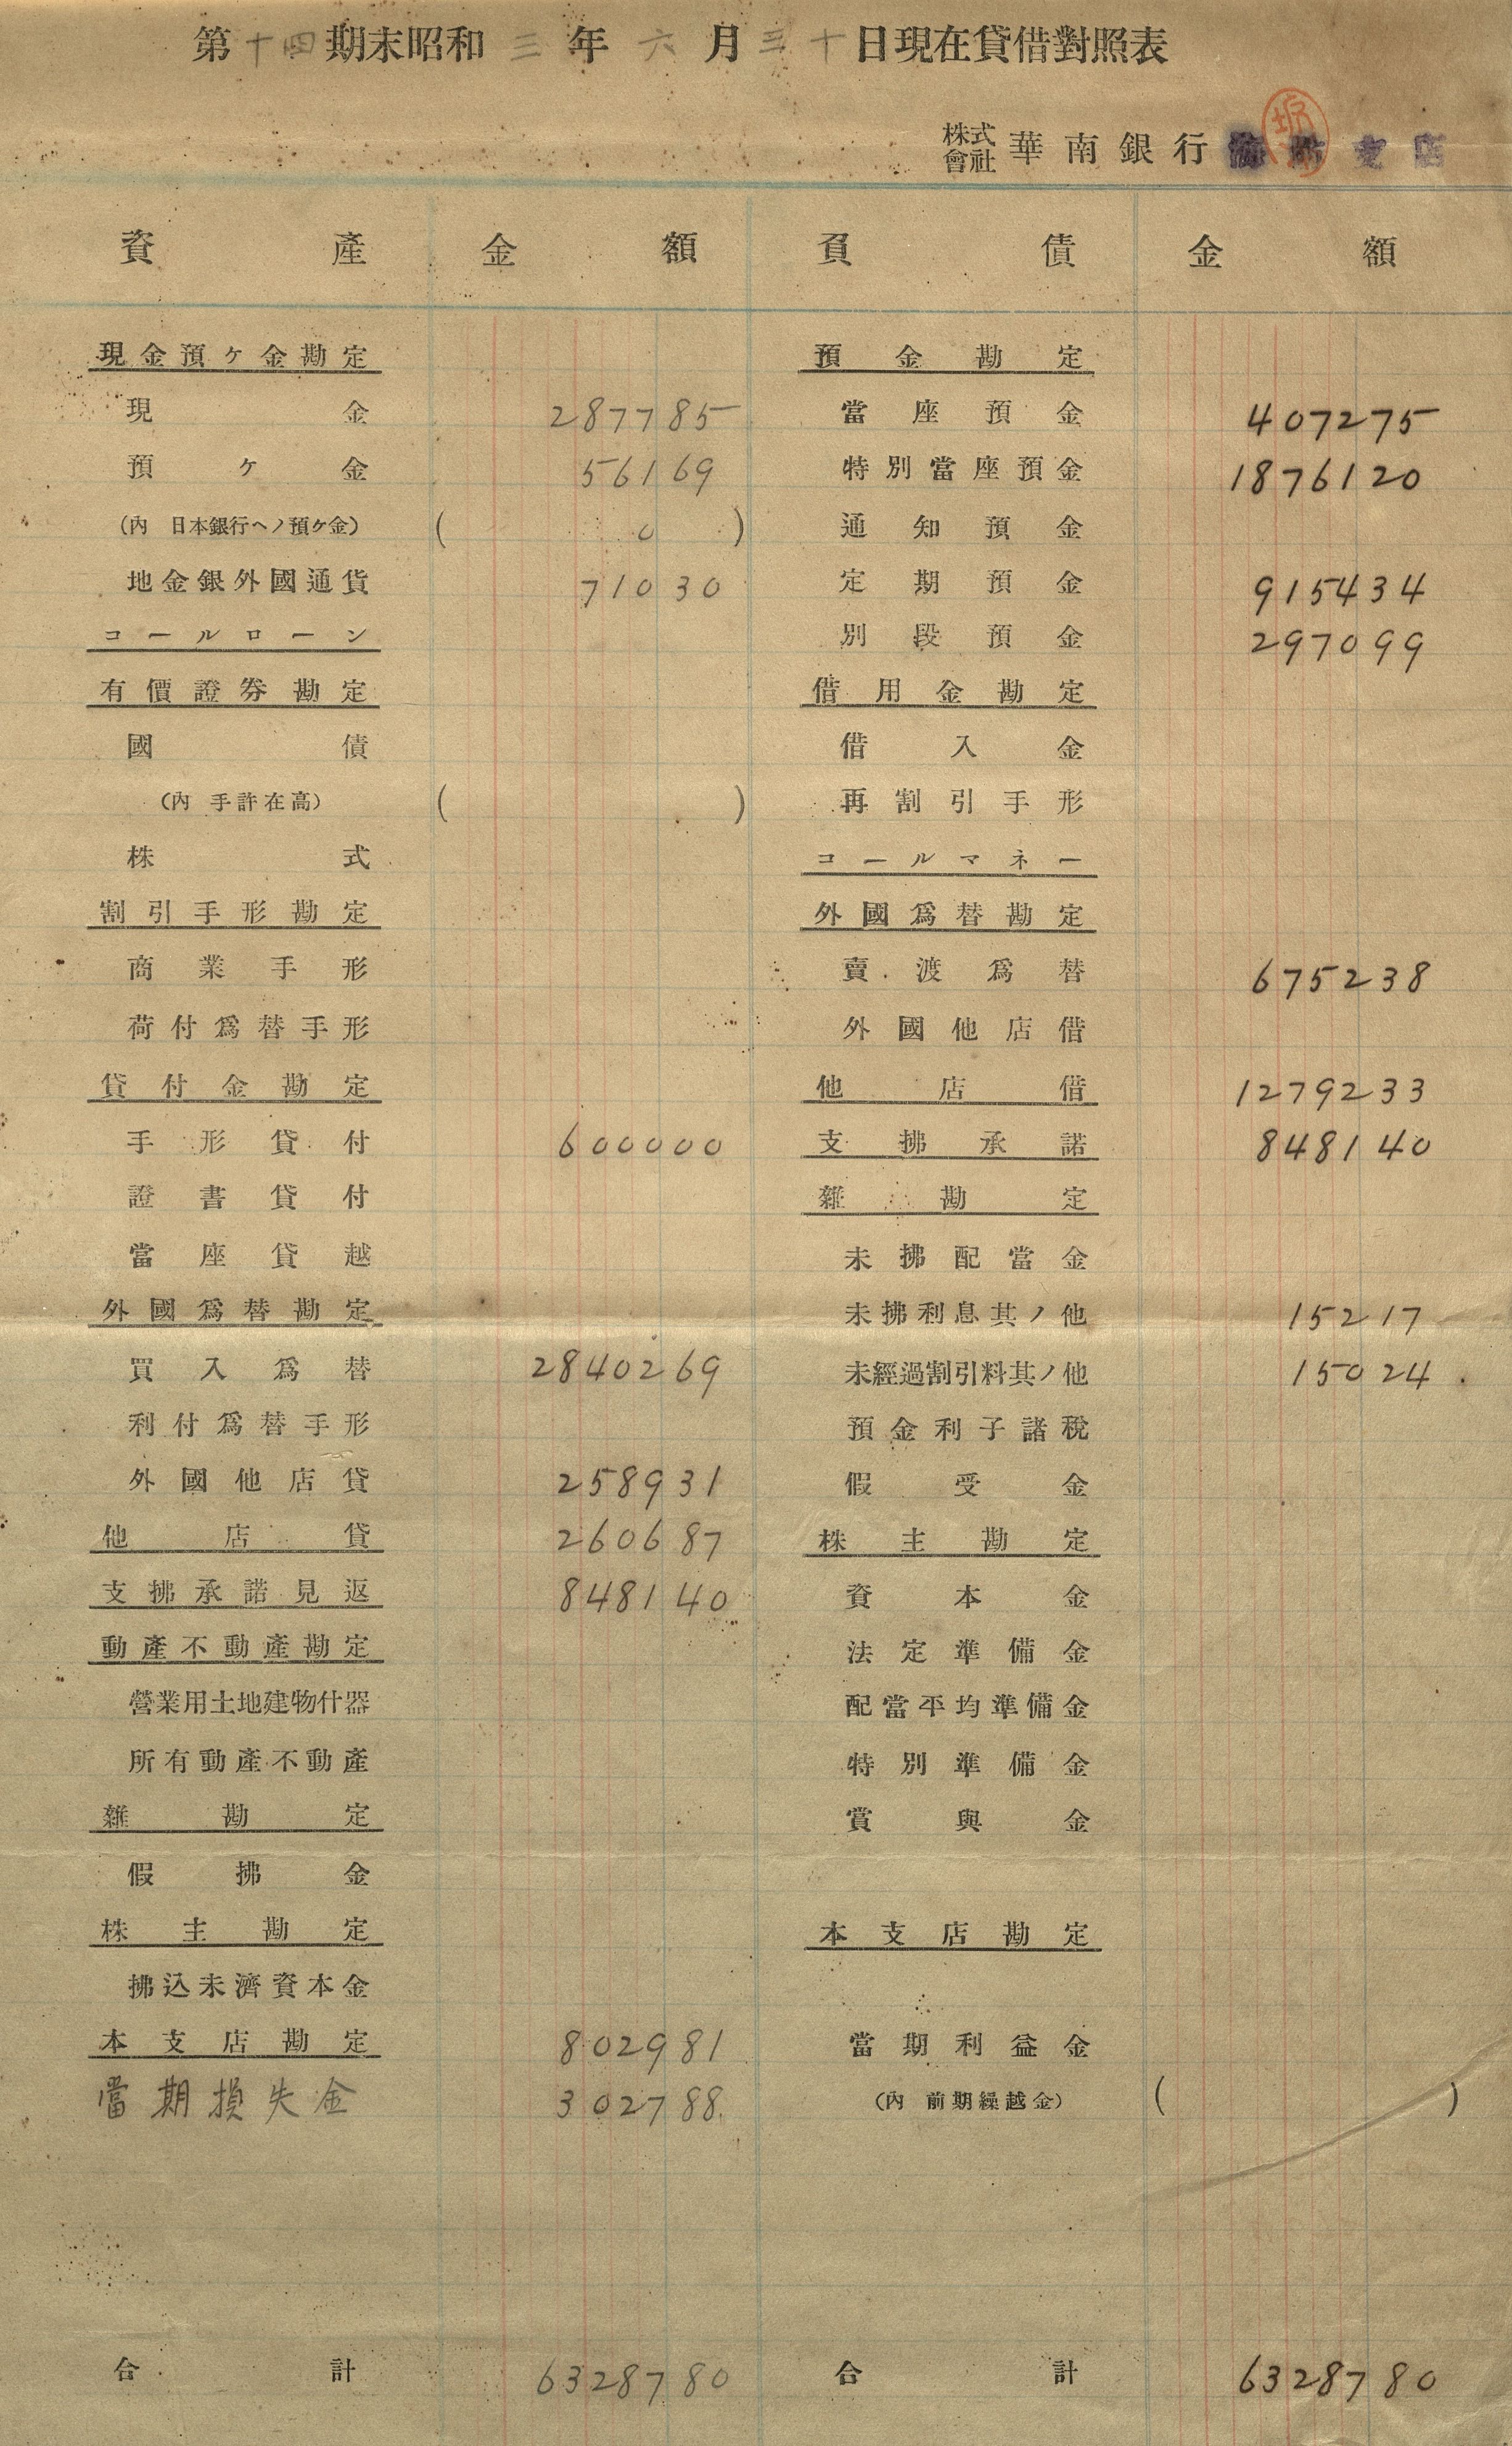 第十四期末昭和三年六月三十日現在貸借對照表
株式會社 華南銀行 支店
資產 金額 負債 金額
現金預ヶ金勘定
現金 287785
預ヶ金 56169
(內 日本銀行ヘノ預ケ金) ( 0 )
地金銀外國通貨 71030
コールローン
有價證券勘定
國債
(內 手許在高) ( )
株式
割引手形勘定
商業手形
荷付爲替手形
貸付金勘定
手形貸付 600000
證書貸付
當座貸越
外國爲替勘定
買入爲替 2840269
利付爲替手形
外國他店貸 258931
他店貸 260687
支拂承諾見返 848140
動產不動產勘定
營業用土地建物什器
所有動產不動產
雜勘定
假拂金
株主勘定
拂込未濟資本金
本支店勘定 802981
當期損失金 302788
合計 6328780
預金勘定
當座預金 407275
特別當座預金 1876120
通知預金
定期預金 915434
別段預金 297099
借用金勘定
借入金
再割引手形
コールマネー
外國爲替勘定
賣渡爲替 675238
外國他店借
他店借 1279233
支拂承諾 848140
雜勘定
未拂配當金
未拂利息其ノ他 15217
未經過割引料其ノ他 15024
預金利子諸稅
假受金
株主勘定
資本金
法定準備金
配當平均準備金
特別準備金
賞與金
本支店勘定
當期利益金
(內 前期繰越金) ( )
合計 6328780